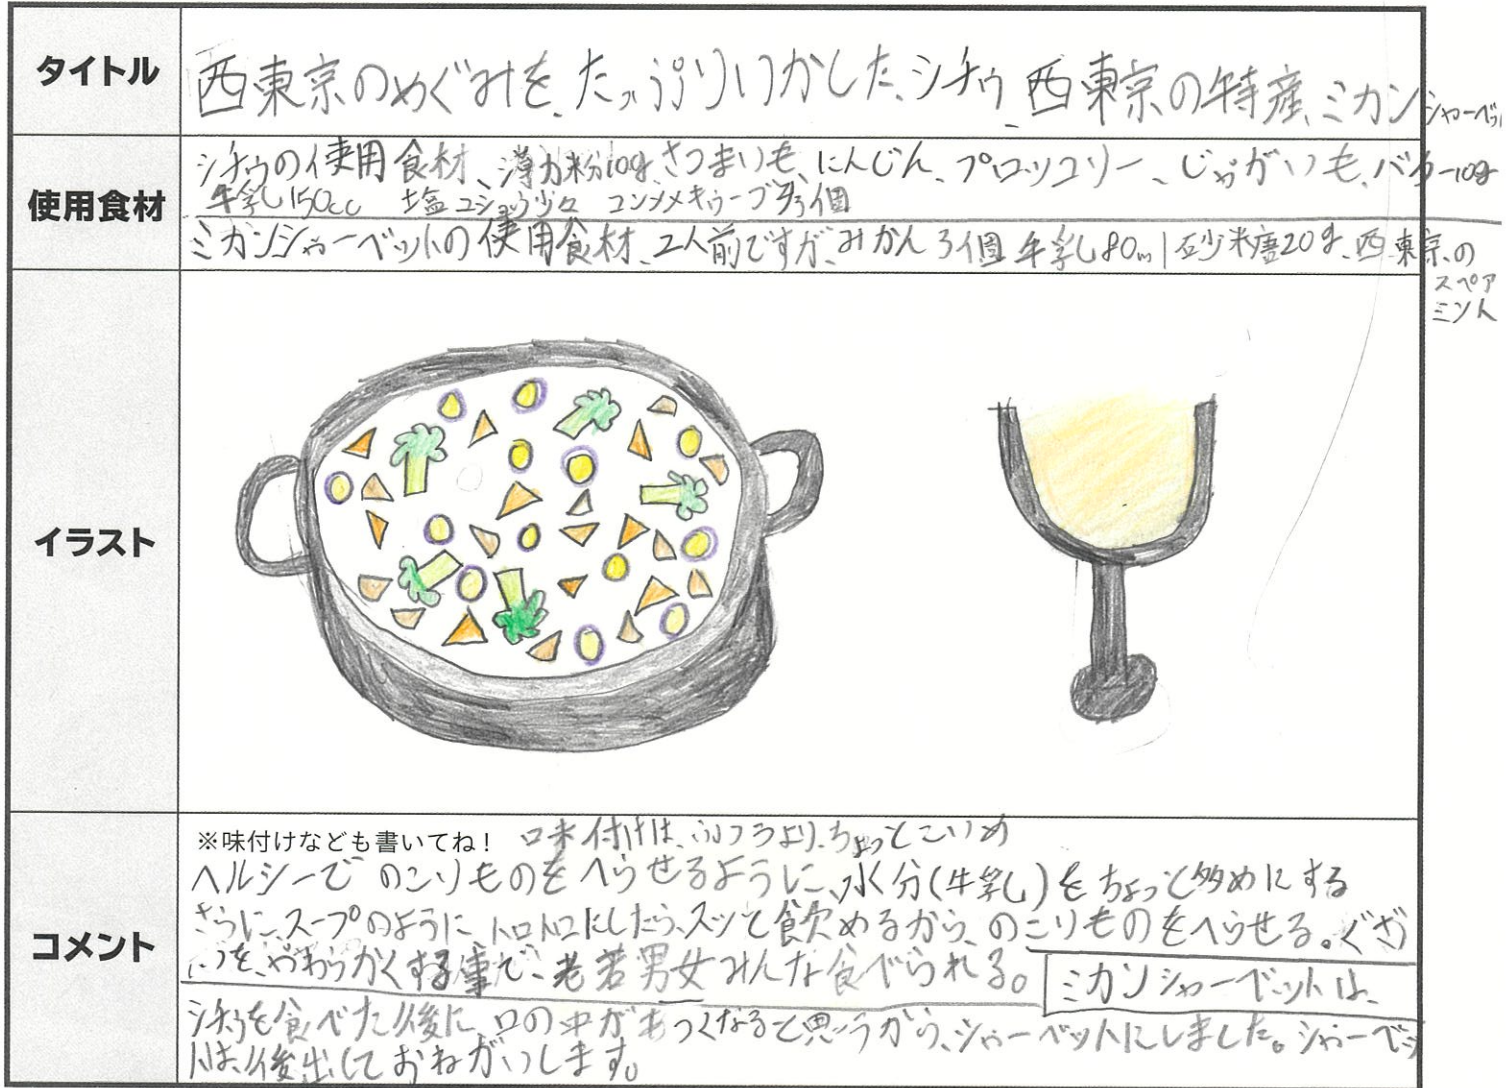 タイトル
西東京のめぐみを、たっぷりいかした、シチウ、西東京の特産、ミカンシャーベッ
使用食材
シチウの使用食材、薄力粉10g、さつまいも、にんじん、ブロッコリー、じゃがいも、バター10g
牛乳150cc 塩コショウ少々 コンソメキューブ 個
ミカンシャーベットの使用食材、2人前ですが、みかん3個 牛乳80ml 砂糖20g、西東京の
スペア
ミント
イラスト
コメント
※味付けなども書いてね！ 味付けは、ふつうより、ちょっとこいめ
ヘルシーで のこりものをへらせるように、水分(牛乳)をちょっと多めにする
さらに、スープのように トロトロにしたら、スッと飲めるから、のこりものをへらせる。ぐざ
いを、やわらかくする事で、老若男女みんな食べられる。 ミカンシャーベットは、
シチウを食べた後に、口の中があつくなると思うから、シャーベットにしました。シャーベッ
トは、後出しでおねがいします。